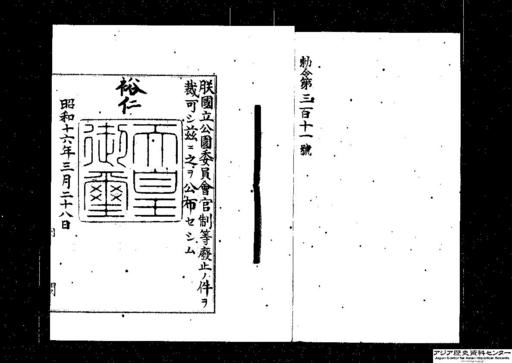 勅令第三百十一號
朕國立公園委員會官制等廢止ノ件ヲ
裁可シ茲ニ之ヲ公布セシム
裕仁
天皇
御璽
昭和十六年三月二十八日
アジア歴史資料センター
Japan Center for Asian Historical Records